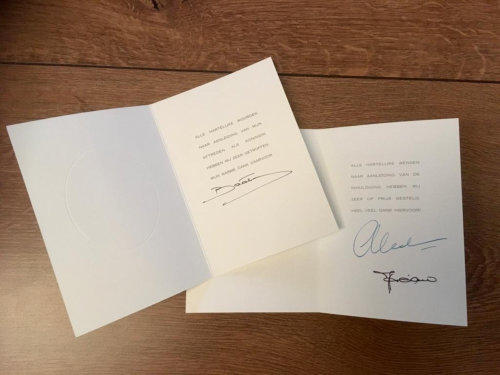 ALLE HARTELIJKE WOORDEN
NAAR AANLEIDING VAN MIJN
AFTREDEN ALS KONINGIN
HEBBEN MIJ ZEER GETROFFEN
MIJN WARME DANK DAARVOOR
ALLE HARTELIJKE WENSEN
NAAR AANLEIDING VAN DE
INHULDIGING HEBBEN WIJ
ZEER OP PRIJS GESTELD
HEEL VEEL DANK HIERVOOR